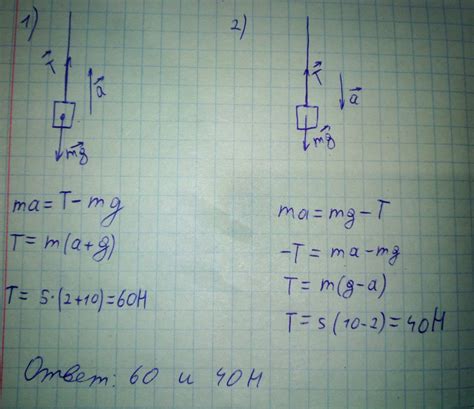 1)
T⃗
a⃗
mg⃗
ma = T - mg
T = m(a+g)
T = 5·(2+10) = 60Н
2)
T⃗
a⃗
mg⃗
ma = mg - T
-T = ma - mg
T = m(g-a)
T = 5(10-2) = 40Н
Ответ: 60 и 40Н